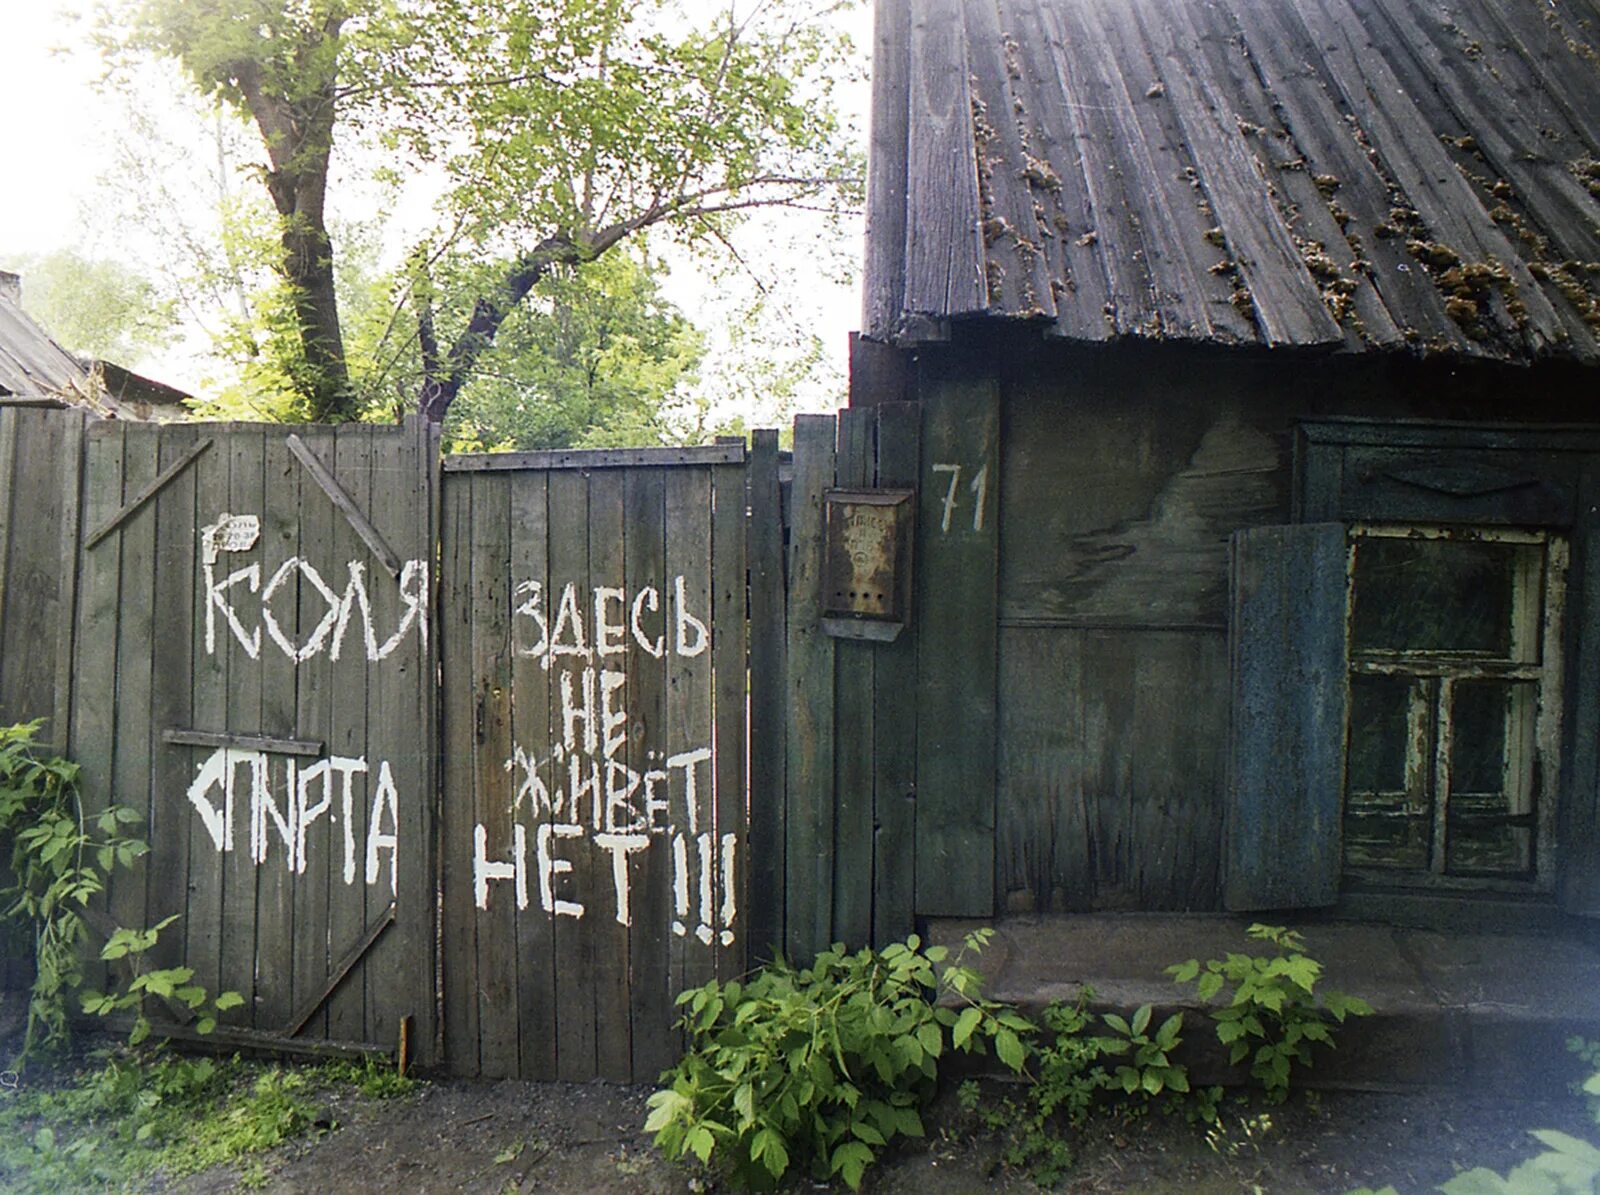 КОЛЯ
ЗДЕСЬ
НЕ
ЖИВЁТ
СПИРТА
НЕТ!!!
71